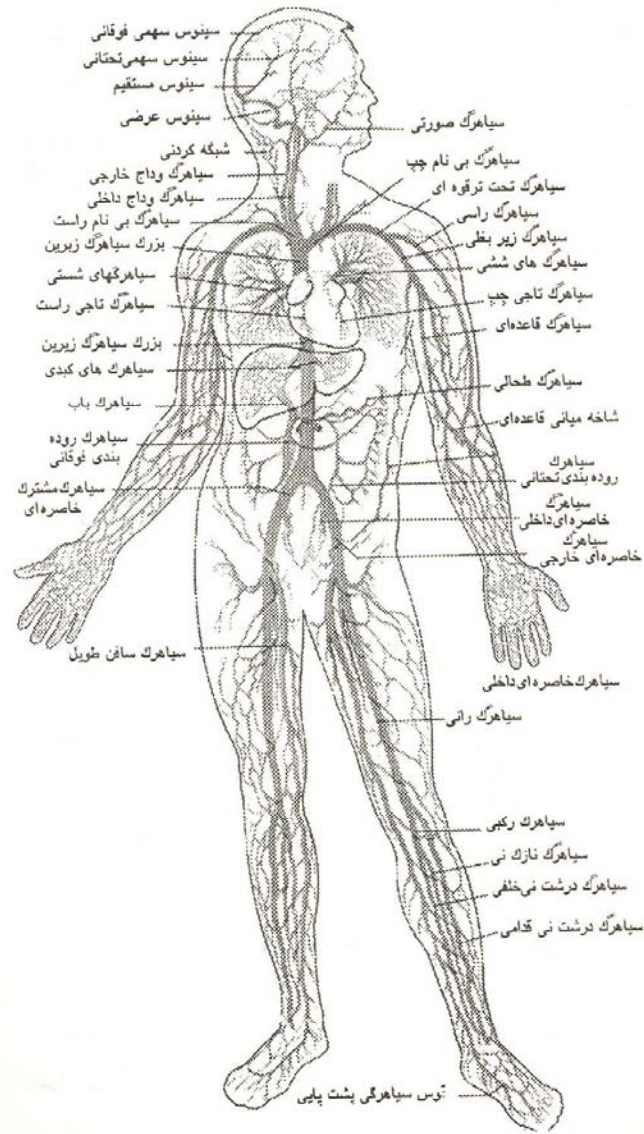 سینوس سهمی فوقانی
سینوس سهمی‌تحتانی
سینوس مستقیم
سینوس عرضی
شبگه کردنی
سیاهرگ وداج خارجی
سیاهرگ وداج داخلی
سیاهرگ بی نام راست
بزرک سیاهرگ زبرین
سیاهرگهای شستی
سیاهرگ تاجی راست
بزرك سیاهرگ زیرین
سیاهرك های کبدی
سیاهرك باب
سیاهرك روده
بندی فوقانی
سیاهرك مشترك
خاصره ای
سیاهرك سافن طویل
سیاهرگ صورتی
سیاهرگ بی نام چپ
سیاهرگ تحت ترقوه ای
سیاهرگ راسی
سیاهرگ زیر بغلی
سیاهرگ های ششی
سیاهرگ تاجی چپ
سیاهرگ قاعده‌ای
سیاهرگ طحالی
شاخه میانی قاعده‌ای
سیاهرگ
روده بندی تحتانی
سیاهرگ
خاصره ای‌داخلی
سیاهرگ
خاصره ای خارجی
سیاهرك خاصره ای داخلی
سیاهرگ رانی
سیاهرك رکبی
سیاهرگ نازك نی
سیاهرگ درشت نی‌خلفی
سیاهرگ درشت نی قدامی
قوس سیاهرگی پشت پایی